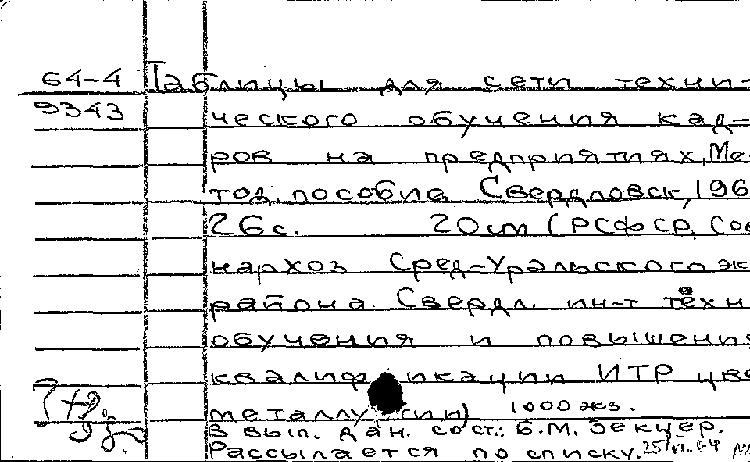 64-4 Таблицы для сети техни-
9343 ческого обучения кад-
ров на предприятиях, Ме
тод. пособие Свердловск, 196
26 с. 20 см (РСФСР, Сов
нархоз Сред-Уральского эк
района. Свердл. ин-т техн
обучения и повышения
квалификации ИТР цве
металлургии) 1000 экз.
В вып. дан. сост.: Б.М. Зекцер.
Рассылается по списку.